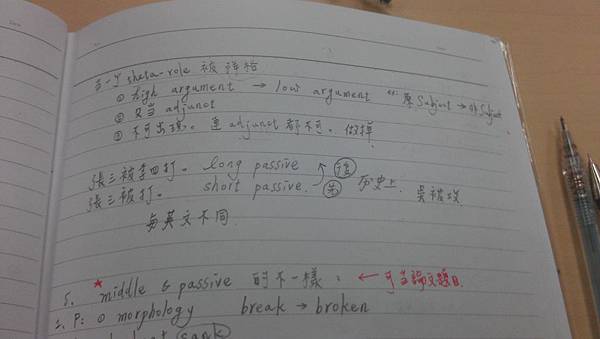 當一個 theta-role 被降格
① high argument → low argument ex: 原 Subject → 非 Subject
② 只當 adjunct
③ 不可出現。連 adjunct 都不可。做掉
張三被李四打。 long passive 後
張三被打。 short passive. 先 历史上. 吳被攻
與英文不同
5. * middle & passive 的不一樣: ← 可當論文題目
P: ① morphology break → broken
sank